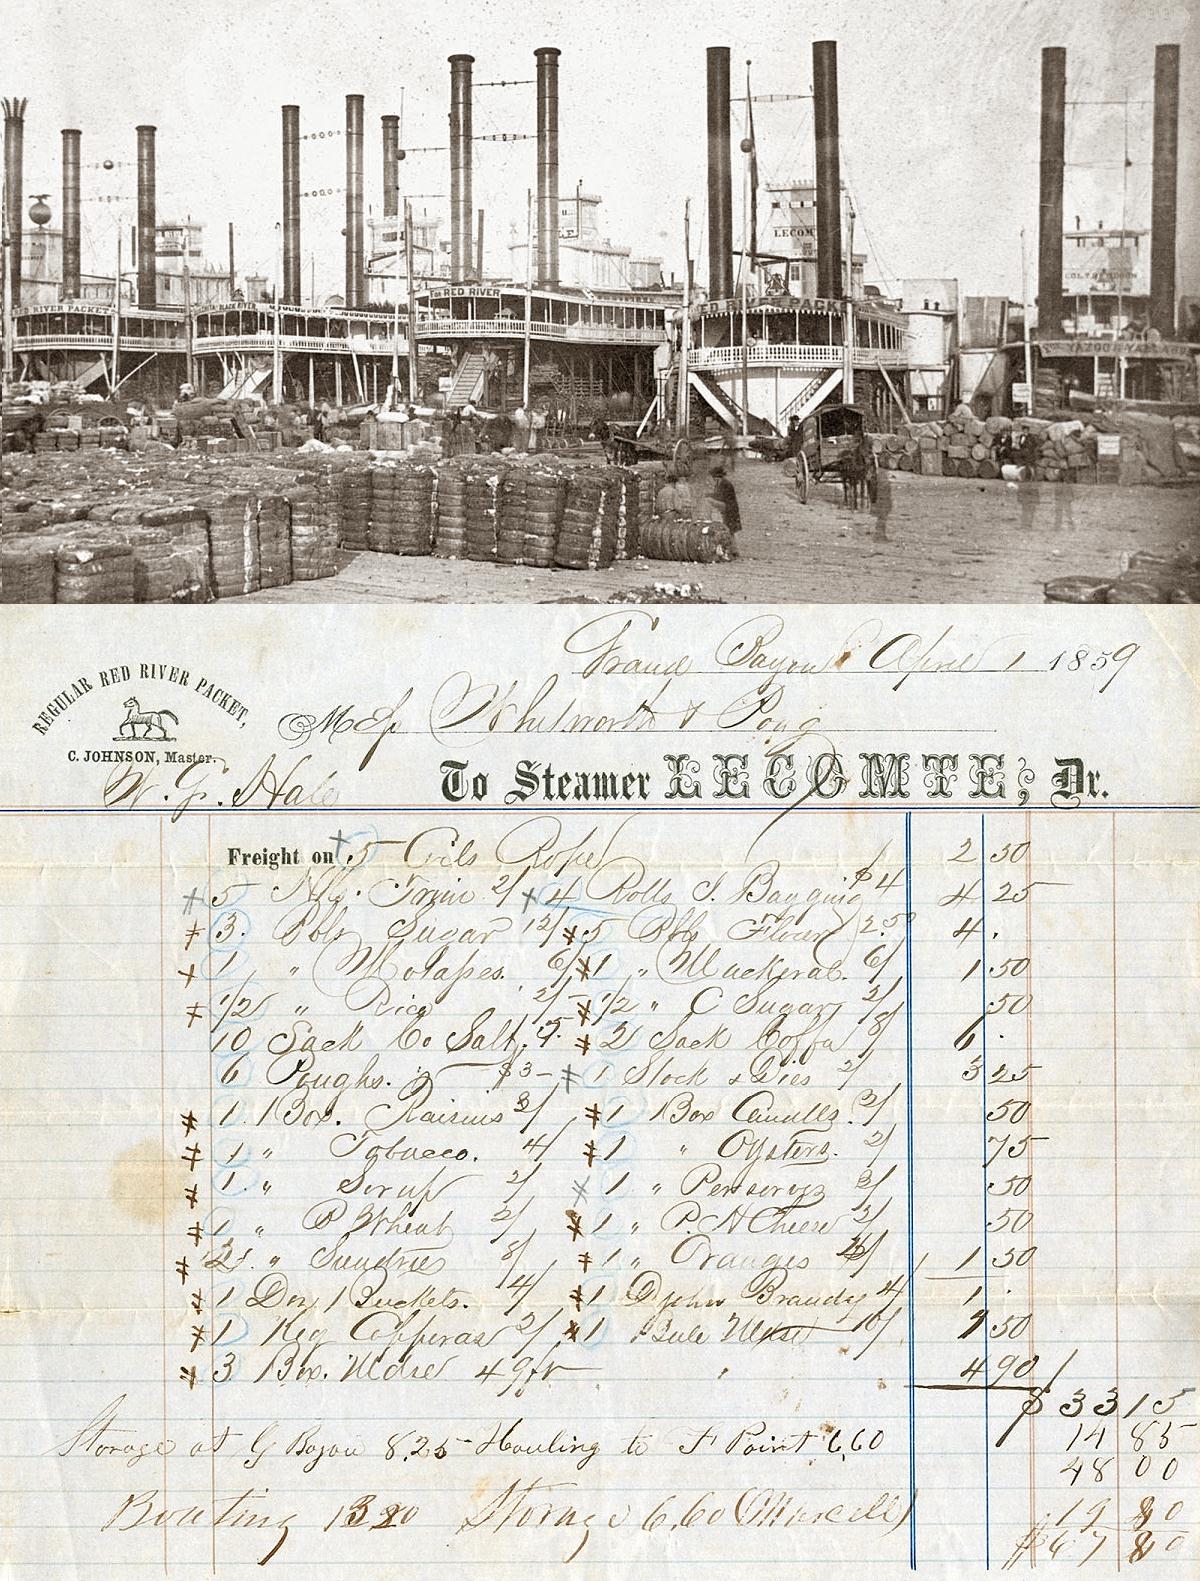 RED RIVER PACKET
BLACK RIVER
FOR RED RIVER
LECOM
ED RIVER PACKE
YAZOO
REGULAR RED RIVER PACKET,
C. JOHNSON, Master.
April 1 1859
Whitworth &
W. G. Hale
To Steamer LECOMTE, Dr.
Freight on 5 Coils Rope 2 50
5 Twine 2/ 4 Rolls I. Bagging $4 4 25
3. Bbls Sugar 12/ 5 Bbls Flour 2.50 4 .
1 " Molasses. 6/ 1 " Mackeral. 6/ 1 50
1/2 " Rice 2/ 1/2 " C Sugar 2/ 50
10 Sack Co Salt, 2 Sack Coffa 8/ 6 .
6 Ploughs. $3 - 1 Stock & Dies 2/ 3 25
1 Box. Raisins 2/ 1 Box Candls. 2/ 50
1 " Tobacco. 4/ 1 " Oysters. 2/ 75
1 " Sirup 2/ 1 " 2/ 50
1 " B Wheat 2/ 1 " P. A Cheese 2/ 50
2 " Sundries 8/ 1 " Oranges 1 50
1 Doz Buckets. 4/ 1 Djohn Brandy 4/ 1 .
1 Keg Copperas 2/ 1 Bale Mdse 10/ 1 50
3 Box. Mdse 4 90
$ 33 15
Storage at G Bayou 8.25 Hauling to F Point 6,60 14 85
48 00
Boating Storage 6,60 19 80
$67 80